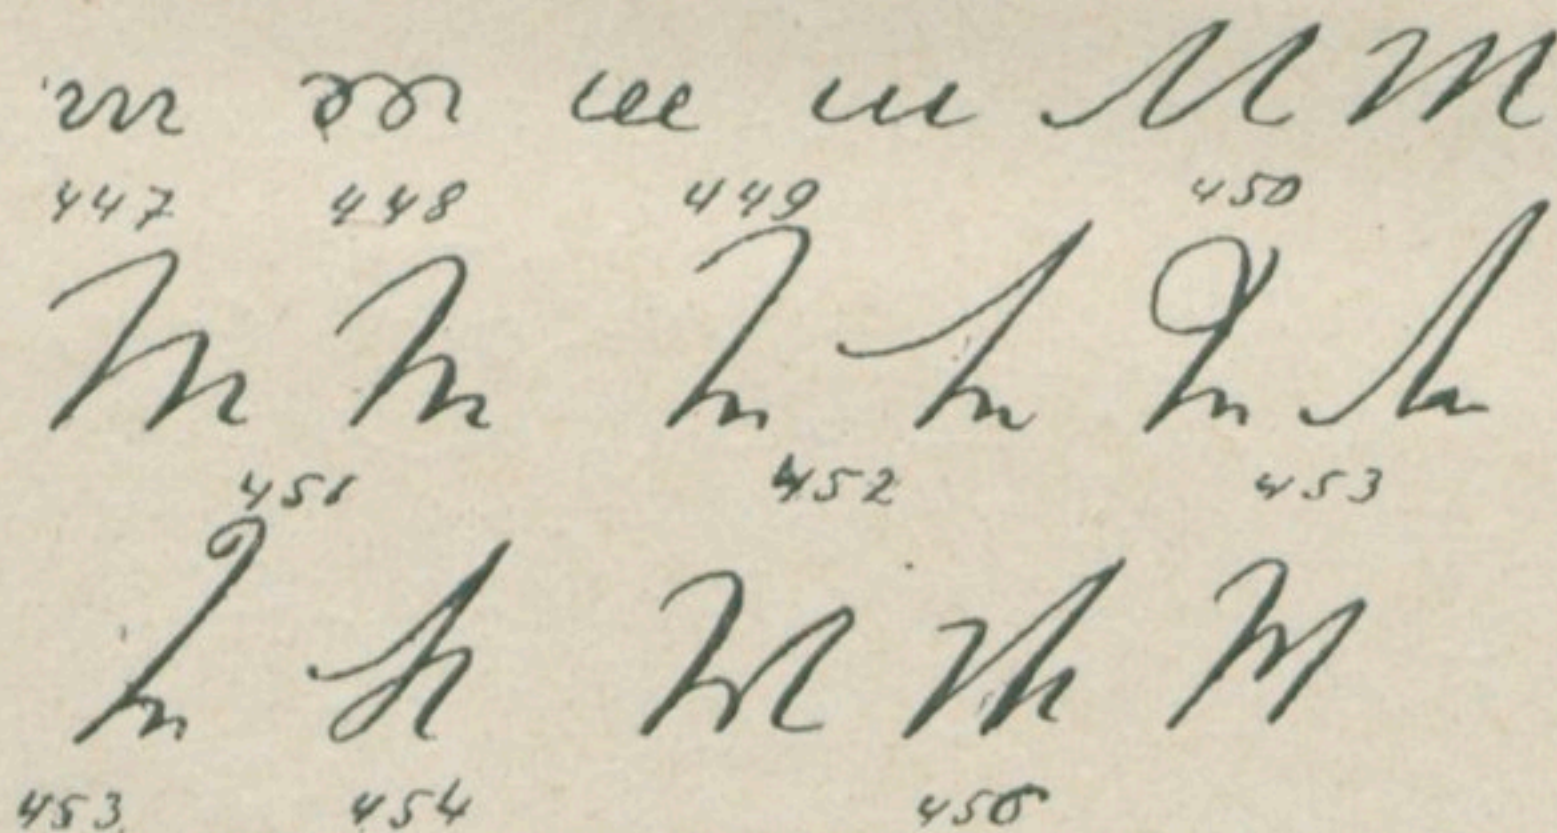 m m m m M M
447 448 449 450
M M M M M M
451 452 453
M M M M M
453 454 456